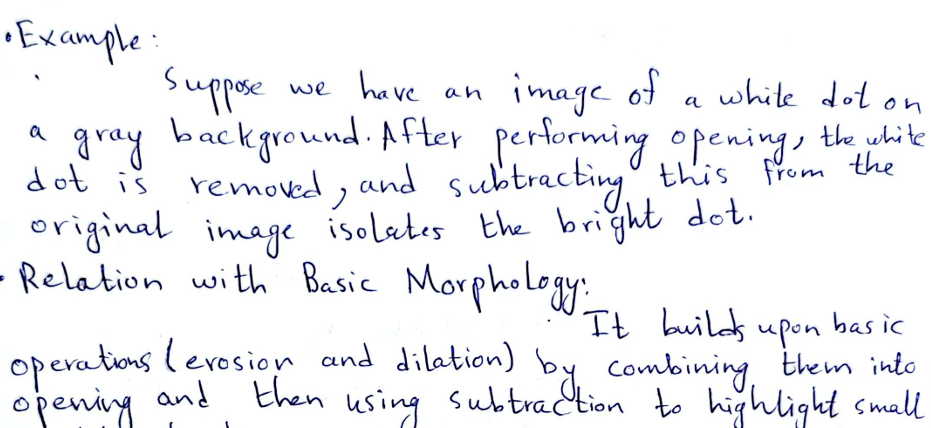 • Example:
Suppose we have an image of a white dot on
a gray background. After performing opening, the white
dot is removed, and subtracting this from the
original image isolates the bright dot.
• Relation with Basic Morphology:
It builds upon basic
operations (erosion and dilation) by combining them into
opening and then using subtraction to highlight small